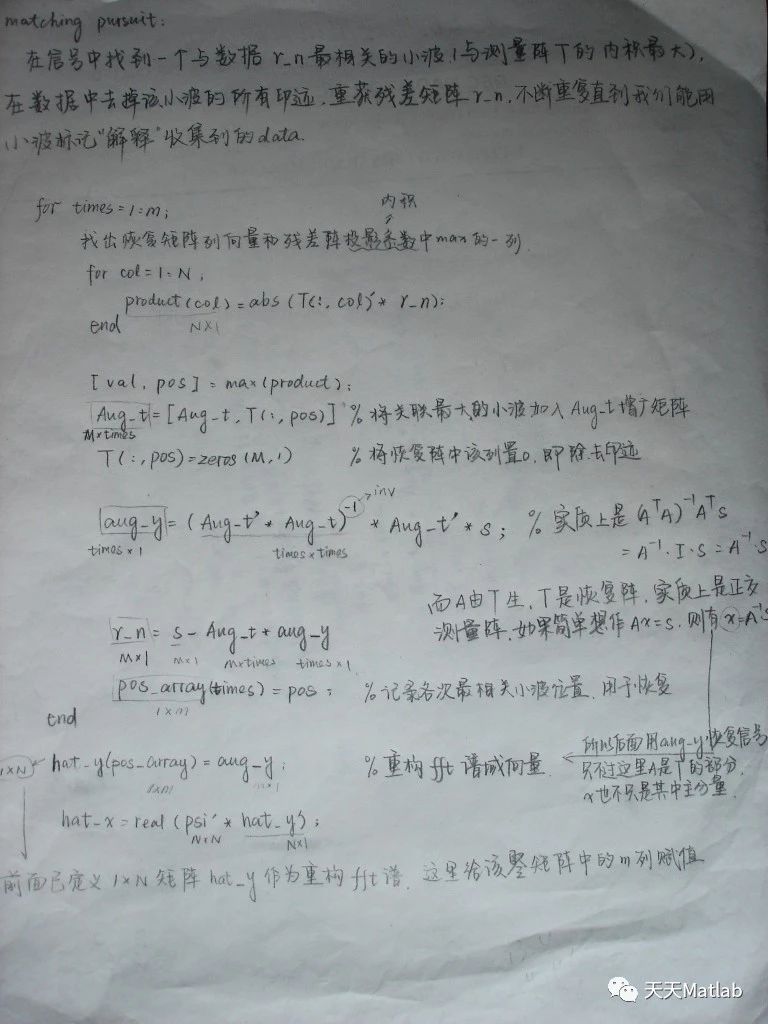 matching pursuit:
在信号中找到一个与数据 r_n 最相关的小波(与测量阵T的内积最大),
在数据中去掉该小波的所有印迹,重获残差矩阵 r_n,不断重复直到我们能用
小波标记"解释"收集到的data.
for times=1:m;
内积
找出恢复矩阵列向量和残差阵投影系数中max的一列
for col=1:N,
product(col)=abs(T(:,col)'* r_n);
end N×1
[val, pos] = max(product);
Aug_t=[Aug_t, T(:,pos)] %将关联最大的小波加入Aug_t增广矩阵
M×times
T(:,pos)=zeros(M,1) %将恢复阵中该列置0,即除去印迹
-1 inv
aug_y=(Aug_t' * Aug_t) * Aug_t' * s; %实质上是(AᵀA)⁻¹Aᵀs
times×1 times×times =A⁻¹·I·s=A⁻¹·s
而A由T生,T是恢复阵,实质上是正交
r_n = s - Aug_t * aug_y 测量阵,如果简单想作Ax=s,则有x=A⁻¹s
M×1 M×1 M×times times×1
pos_array(times)=pos; %记录各次最相关小波位置,用于恢复
1×m
end
所以后面用aug_y恢复信号
1×N hat_y(pos_array)=aug_y; %重构fft谱域向量 只不过这里A是T的部分,
1×m m×1 x也不只是其中主分量.
hat_x=real(psi'* hat_y);
N×N N×1
前面已定义1×N矩阵hat_y作为重构fft谱,这里给该整矩阵中的m列赋值
天天Matlab